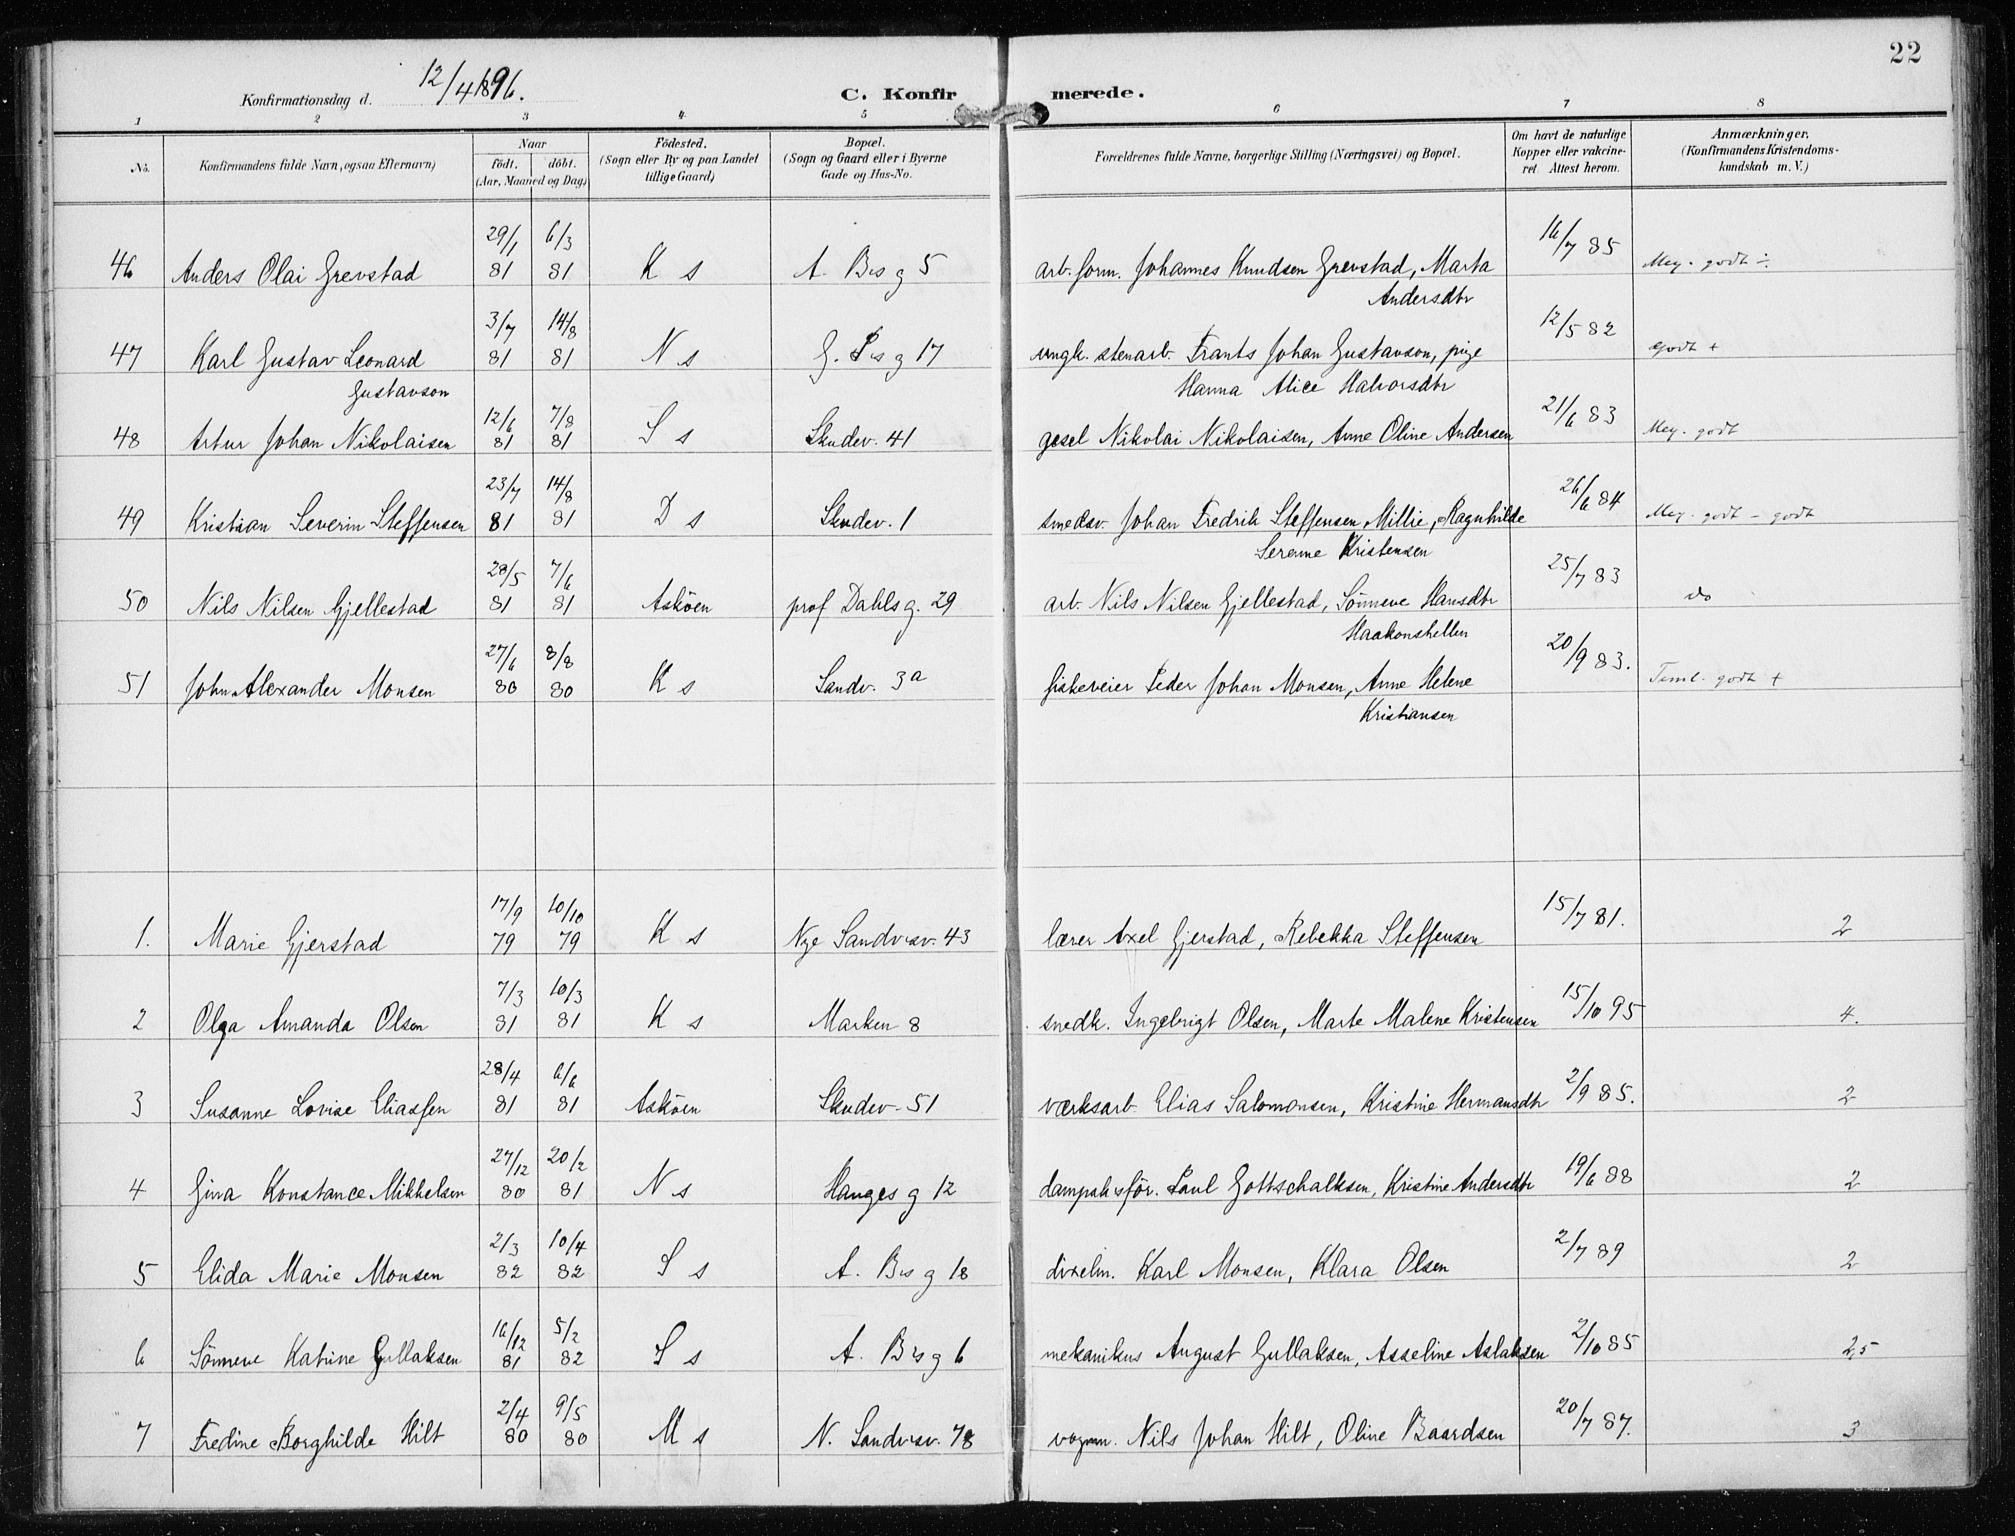 22
Konfirmationsdag d. 12/4 1896. C. Konfirmerede.
1 2 3 4 5 6 7 8
No. Konfirmandens fulde Navn, ogsaa Efternavn) Naar födt. döbt. (Aar, Maaned og Dag) Födested. (Sogn eller By og paa Landet tillige Gaard) Bopæl. (Sogn og Gaard eller i Byerne Gade og Hus-No. Forældrenes fulde Navne, borgerlige Stilling (Næringsvei) og Bopæl. Om havt de naturlige Kopper eller vakcineret. Attest herom. Anmærkninger. (Konfirmandens Kristendomskundskab m. V.)
29/1 6/3 16/7 85
46 Anders Olai Grevstad 81 81 K s A. Bs g 5 arb. form. Johannes Knudsen Grevstad, Marta Meg. godt ÷
Andersdtr
3/7 14/8 12/5 82
47 Karl Gustav Leonard 81 81 N s G. Ps g 17 ungk. stenarb. Frants Johan Gustavson, pige godt +
Gustavson Hanna Alice Halvorsdtr
12/6 7/8 21/6 83
48 Artur Johan Nikolaisen 81 81 S s Skudev. 41 gesel Nikolai Nikolaisen, Anne Oline Andersen Meg. godt
23/7 14/8 26/6 84
49 Kristian Severin Steffensen 81 81 D s Skudev. 1 smedsv. Johan Fredrik Steffensen, Millie, Ragnhilde Meg. godt - godt
Serene Kristensen
28/5 7/6 25/7 83
50 Nils Nilsen Gjellestad 81 81 Asköen prof Dahls g. 29 arb. Nils Nilsen Gjellestad, Sönneve Hansdtr do
Haakonshellen
27/6 8/8 20/9 83.
51 John Alexander Monsen 80 80 K s Sandv. 3a fiskeveier Peder Johan Monsen, Anne Helene Teml. godt +
Kristiansen
17/9 10/10 15/7 81.
1. Marie Gjerstad 79 79 K s Nye Sandvsv. 43 lærer Axel Gjerstad, Rebekka Steffensen 2
7/3 10/3 15/10 95
2 Olga Amanda Olsen 81 81 K s Marken 8 snedk. Ingebrigt Olsen, Marte Malene Kristensen 4.
28/4 6/6 2/9 85.
3 Susanne Lovise Eliassen 81 81 Asköen Skudev. 51 værksarb. Elias Salomonsen, Kristine Hermansdtr 2
27/12 20/2 19/6 88
4 Gina Konstance Mikkelsen 80 81 N s Hauges g 12 dampsksför. Paul Gottschalksen, Kristine Andersdtr 2
2/3 10/4 2/7 89
5 Elida Marie Monsen 82 82 S s A. Bs g 18 dixelm. Karl Monsen, Klara Olsen 2
16/12 5/2 2/10 85
6 Sönneve Katrine Gullaksen 81 82 S s A. Bs g 6 mekanikus August Gullaksen, Asseline Aslaksen 2,5
2/4 9/5 20/7 87.
7 Fredine Borghilde Hilt 80 80 M s N. Sandvsv. 78 vognm. Nils Johan Hilt, Oline Baardsen 3